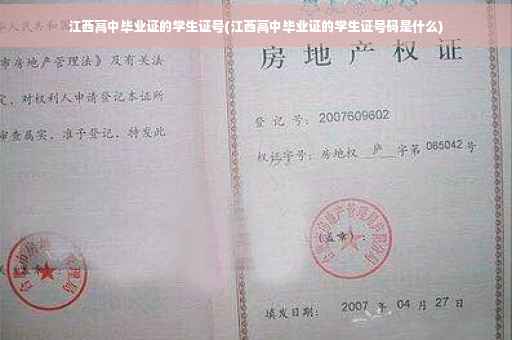 江西高中毕业证的学生证号(江西高中毕业证的学生证号码是什么)
人民共和国
市房地产管理法》及有关法
定，对权利人申请登记本证所
审查属实，准予登记，特发此
房地产权证
登记号：2007609602
权证字号：房地权 庐 字第 085042 号
(盖章)：
填发日期： 2007 年 04 月 27 日